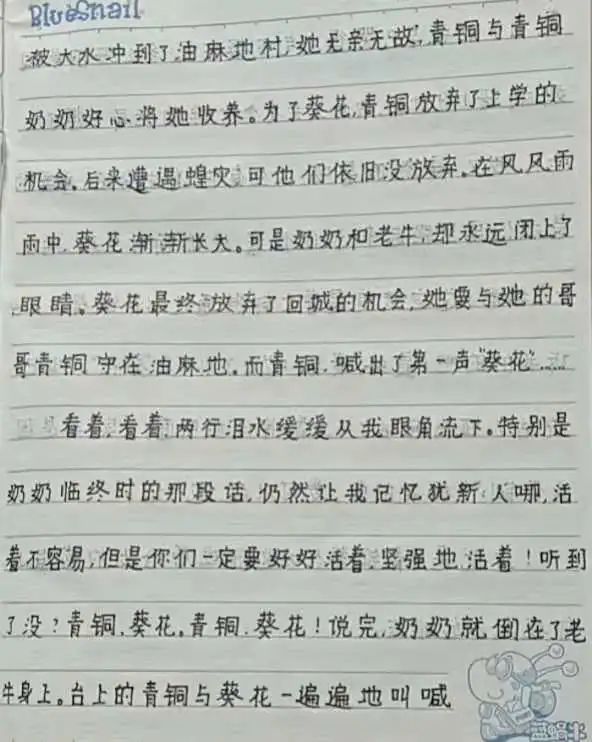 BlueSnail
被大水冲到了油麻地村,她无亲无故,青铜与青铜
奶奶好心将她收养。为了葵花,青铜放弃了上学的
机会。后来遭遇蝗灾,可他们依旧没放弃。在风风雨
雨中,葵花渐渐长大。可是奶奶和老牛,却永远闭上了
眼睛。葵花最终放弃了回城的机会,她要与她的哥
哥青铜守在油麻地。而青铜,喊出了第一声“葵花”……
看着,看着,两行泪水缓缓从我眼角流下。特别是
奶奶临终时的那段话,仍然让我记忆犹新:人哪,活
着不容易,但是你们一定要好好活着,坚强地活着!听到
了没?青铜、葵花。青铜、葵花!说完,奶奶就倒在了老
牛身上。台上的青铜与葵花一遍遍地叫喊
蓝蜗牛